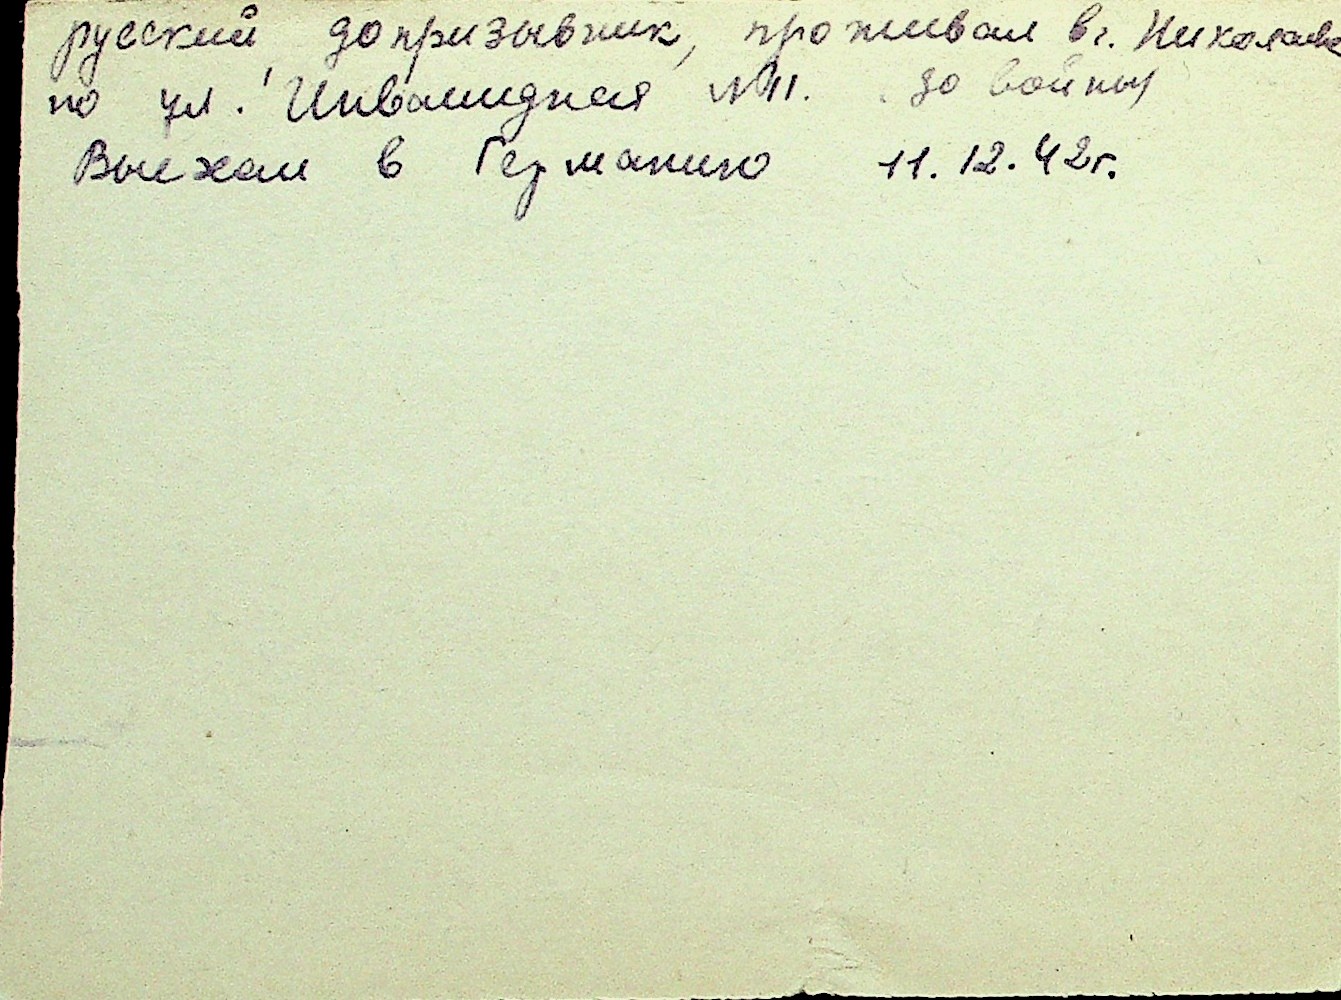 русский допризывник, проживал в г. Николаеве
по ул. Инвалидная №11. до войны
Выехал в Германию 11.12.42г.